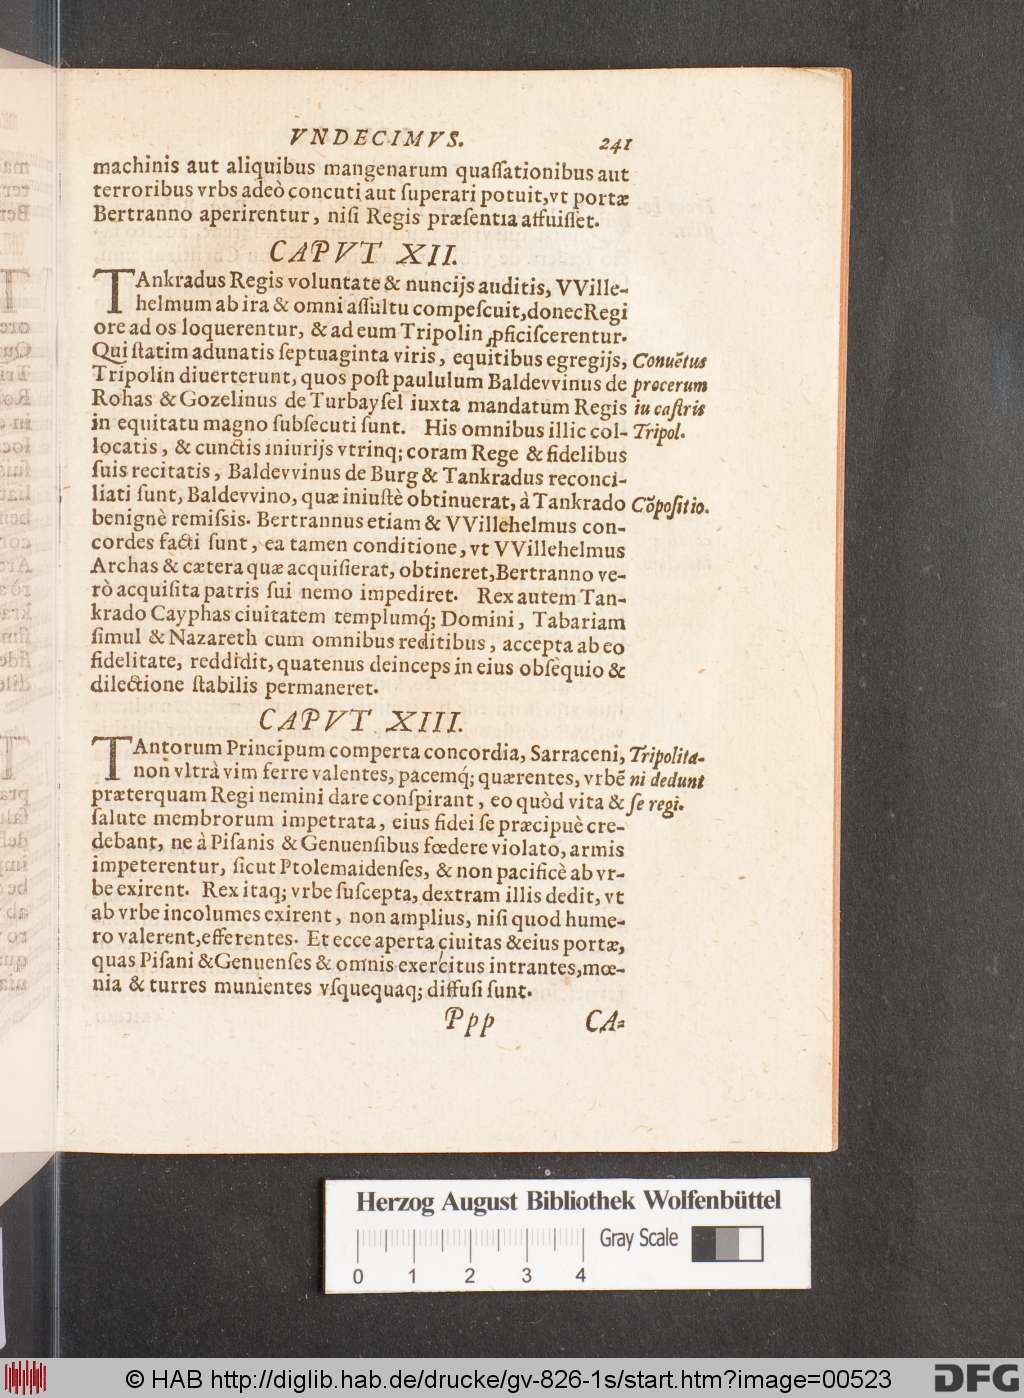 VNDECIMVS. 241
machinis aut aliquibus mangenarum quaſſationibus aut
terroribus vrbs adeò concuti aut ſuperari potuit, vt portæ
Bertranno aperirentur, niſi Regis præſentia affuiſſet.
CAPVT XII.
TAnkradus Regis voluntate & nuncijs auditis, VVille-
helmum ab ira & omni aſſultu compeſcuit, donec Regi
ore ad os loquerentur, & ad eum Tripolin ꝓficiſcerentur.
Qui ſtatim adunatis ſeptuaginta viris, equitibus egregijs,
Tripolin diuerterunt, quos poſt paululum Baldevvinus de
Rohas & Gozelinus de Turbayſel iuxta mandatum Regis
in equitatu magno ſubſecuti ſunt. His omnibus illic col-
locatis, & cunctis iniurijs vtrinq; coram Rege & fidelibus
ſuis recitatis, Baldevvinus de Burg & Tankradus reconci-
liati ſunt, Baldevvino, quæ iniuſtè obtinuerat, à Tankrado
benignè remiſsis. Bertrannus etiam & VVillehelmus con-
cordes facti ſunt, ea tamen conditione, vt VVillehelmus
Archas & cætera quæ acquiſierat, obtineret, Bertranno ve-
rò acquiſita patris ſui nemo impediret. Rex autem Tan-
krado Cayphas ciuitatem templumq́; Domini, Tabariam
ſimul & Nazareth cum omnibus reditibus, accepta ab eo
fidelitate, reddidit, quatenus deinceps in eius obſequio &
dilectione ſtabilis permaneret.
Conuẽtus
procerum
in caſtris
Tripol.
Cõpoſitio.
CAPVT XIII.
TAntorum Principum comperta concordia, Sarraceni,
non vltrà vim ferre valentes, pacemq́; quærentes, vrbẽ
præterquam Regi nemini dare conſpirant, eo quòd vita &
ſalute membrorum impetrata, eius fidei ſe præcipuè cre-
debant, ne à Piſanis & Genuenſibus fœdere violato, armis
impeterentur, ſicut Ptolemaidenſes, & non pacificè ab vr-
be exirent. Rex itaq; vrbe ſuſcepta, dextram illis dedit, vt
ab vrbe incolumes exirent, non amplius, niſi quod hume-
ro valerent, efferentes. Et ecce aperta ciuitas & eius portæ,
quas Piſani & Genuenſes & omnis exercitus intrantes, mœ-
nia & turres munientes vſquequaq; diffuſi ſunt.
Tripolita-
ni dedunt
ſe regi.
Ppp CA-
Herzog August Bibliothek Wolfenbüttel
Gray Scale
0 1 2 3 4
© HAB http://diglib.hab.de/drucke/gv-826-1s/start.htm?image=00523
DFG